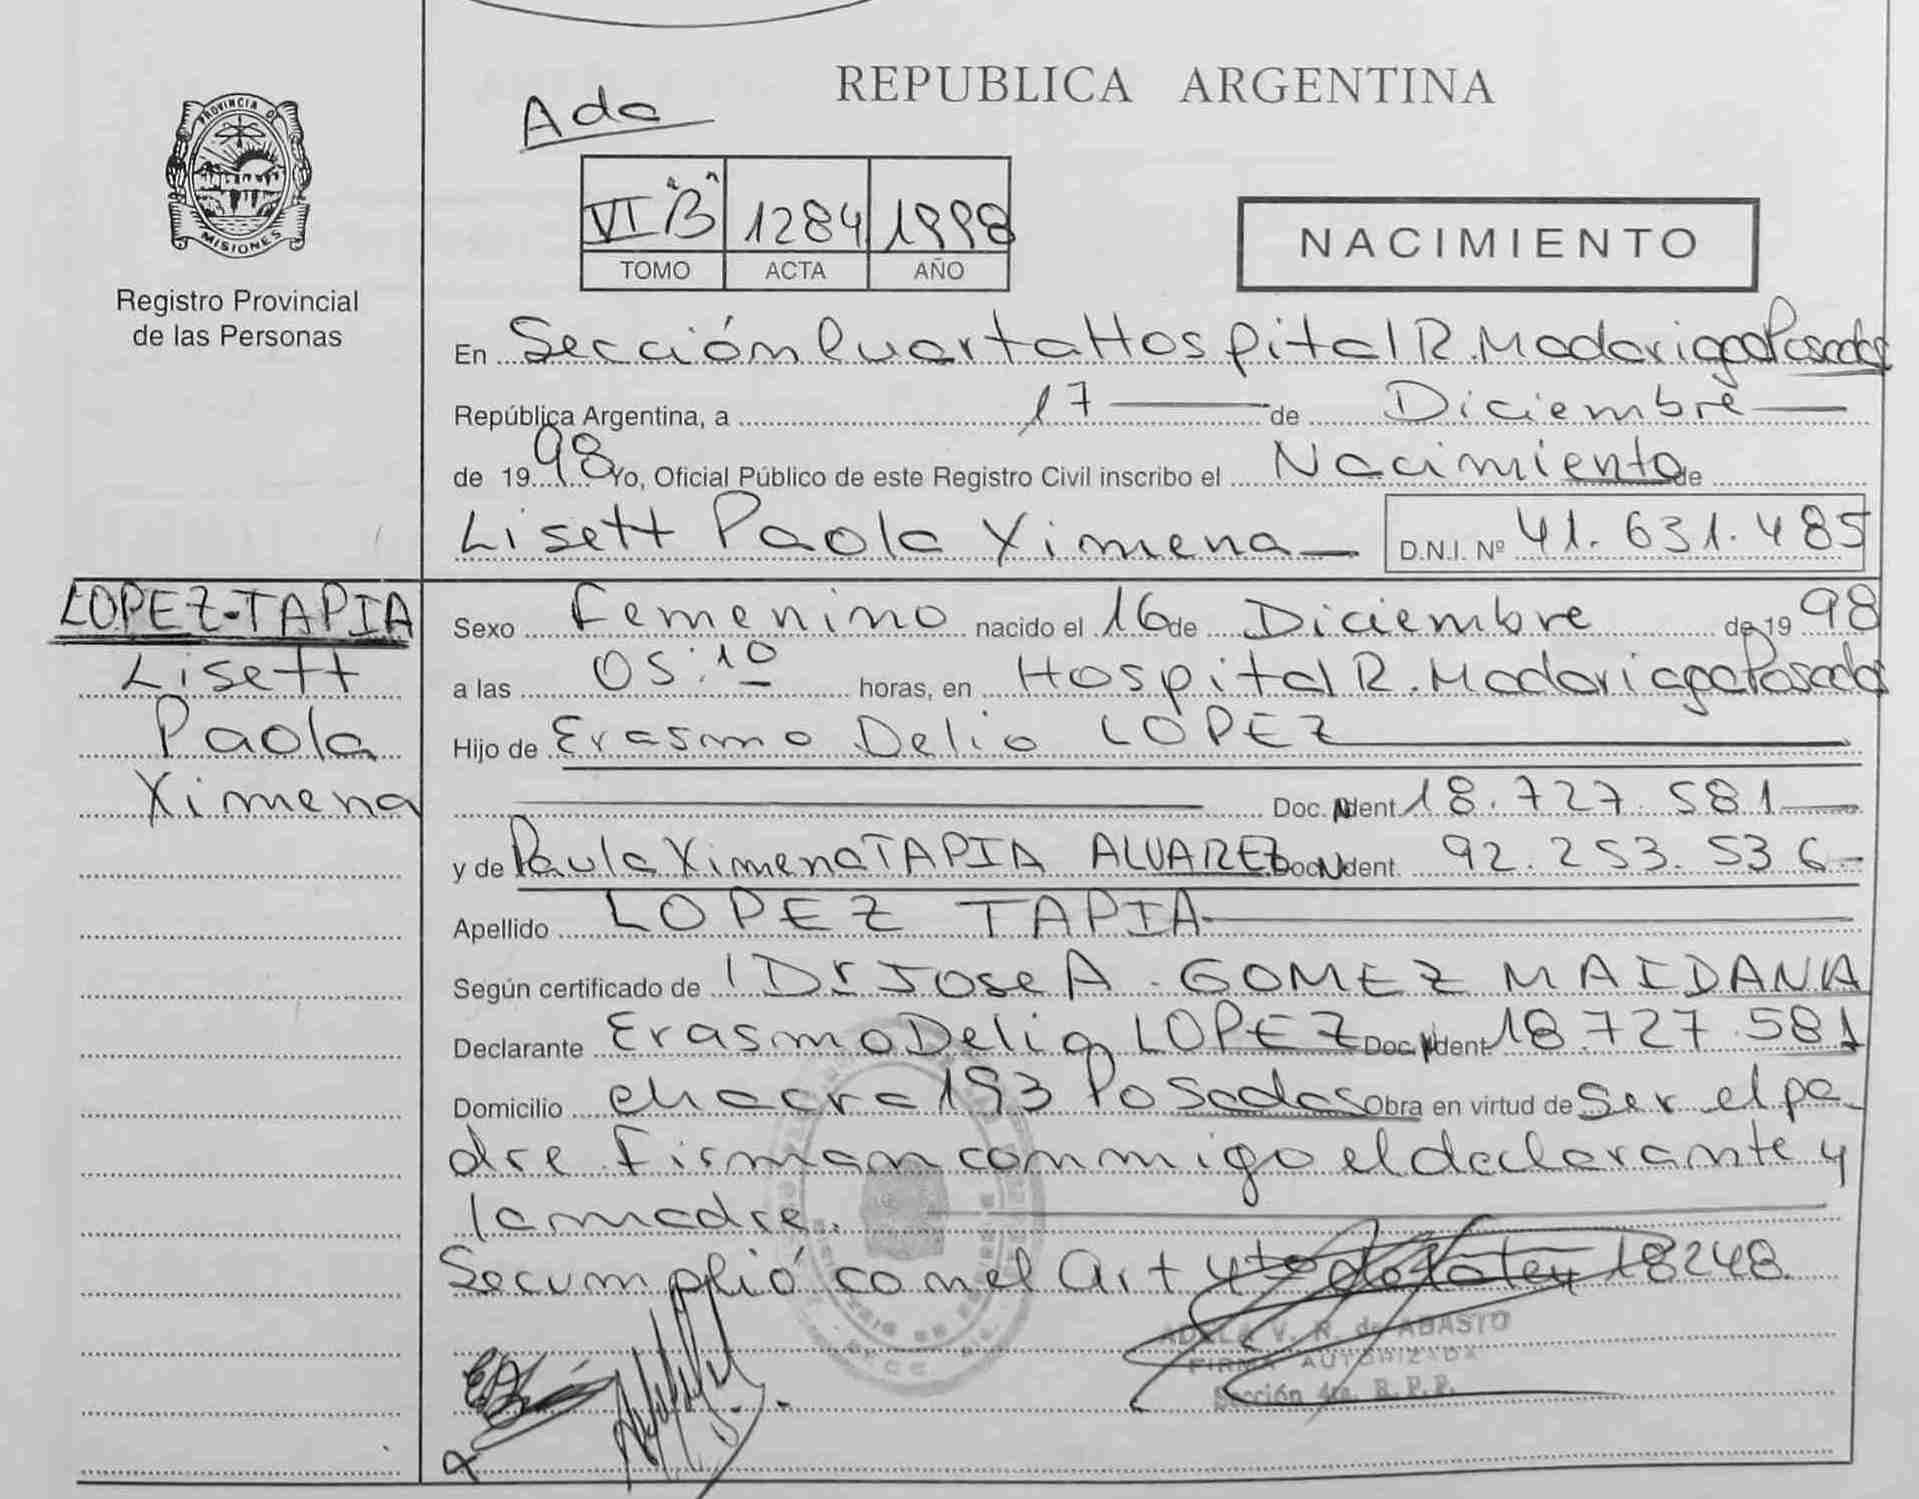 REPUBLICA ARGENTINA
Ada
PROVINCIA DE
MISIONES
VI "B" 1284 1998
TOMO ACTA AÑO
NACIMIENTO
Registro Provincial
de las Personas
En Sección Cuarta Hospital R. Madariaga Posadas
República Argentina, a 17 de Diciembre
de 1998 Yo, Oficial Público de este Registro Civil inscribo el Nacimiento de
Lisett Paola Ximena D.N.I. Nº 41.631.485
LOPEZ-TAPIA
Lisett
Paola
Ximena
Sexo Femenino nacido el 16 de Diciembre de 1998
a las 05:10 horas, en Hospital R. Madariaga Posadas
Hijo de Erasmo Delio LOPEZ
Doc. Ident. 18.727.581
y de Paula Ximena TAPIA ALVAREZ Doc. Ident. 92.253.536
Apellido LOPEZ TAPIA
Según certificado de l Dr Jose A. GOMEZ MAIDANA
Declarante Erasmo Delio LOPEZ Doc. Ident. 18.727.581
Domicilio chacra 193 Posadas Obra en virtud de Ser el pa
dre. Firman conmigo el declarante y
la madre.
Se cumplió con el Art 4to de la Ley 18248.
ADELA V. R. de ABASTO
FIRMA AUTORIZADA
Sección 4ta. R. P. P.